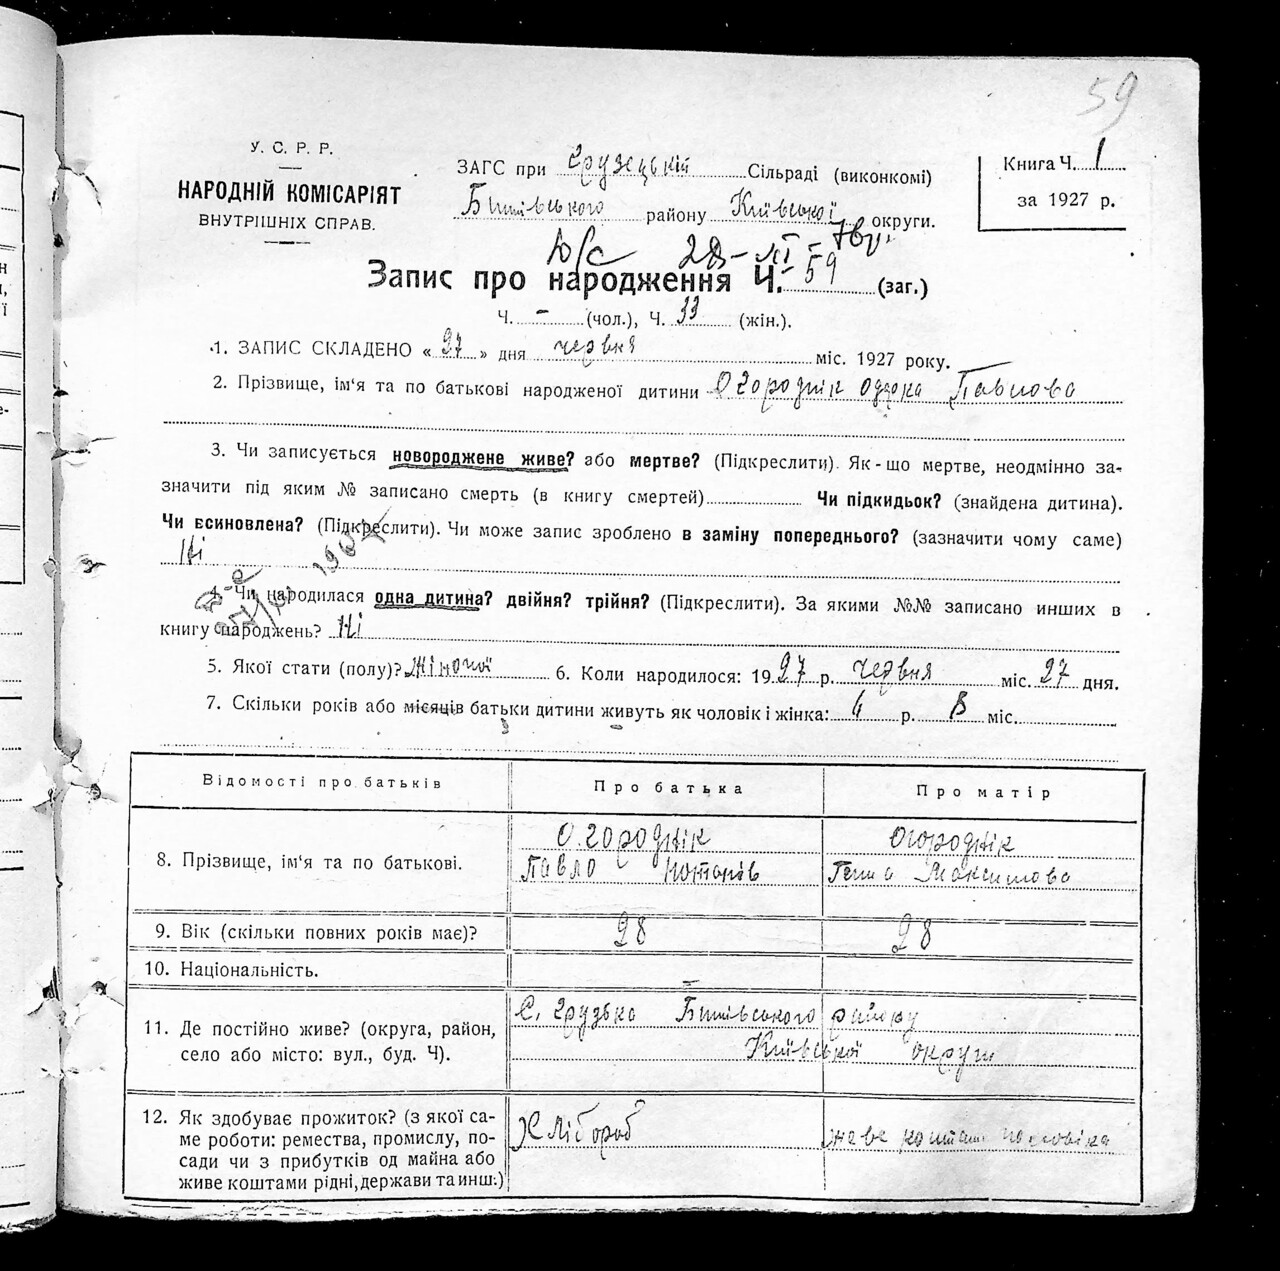 59
У. С. Р. Р.
НАРОДНІЙ КОМІСАРІЯТ
ВНУТРІШНІХ СПРАВ.
ЗАГС при Грузецькій Сільраді (виконкомі)
Бишівського району Київської округи.
Книга Ч. 1
за 1927 р.
Запис про народження Ч. 59 (заг.)
Ч. - (чол.), Ч. 33 (жін.).
1. ЗАПИС СКЛАДЕНО « 27 » дня червня міс. 1927 року.
2. Прізвище, ім'я та по батькові народженої дитини Огороднік Одарка Павлова
3. Чи записується новороджене живе? або мертве? (Підкреслити). Як-що мертве, неодмінно за-
значити під яким № записано смерть (в книгу смертей) Чи підкидьок? (знайдена дитина).
Чи всиновлена? (Підкреслити). Чи може запис зроблено в заміну попереднього? (зазначити чому саме)
Ні
4. Чи народилася одна дитина? двійня? трійня? (Підкреслити). За якими №№ записано инших в
книгу народжень? Ні
5. Якої стати (полу)? Жіночої 6. Коли народилося: 1927 р. червня міс. 27 дня.
7. Скільки років або місяців батьки дитини живуть як чоловік і жінка: 4 р. 8 міс.
Відомості про батьків Про батька Про матір
8. Прізвище, ім'я та по батькові. Огороднік Павло Огороднік Максимова
9. Вік (скільки повних років має)? 28 28
10. Національність.
11. Де постійно живе? (округа, район,
село або місто: вул., буд. Ч). С. Грузька Бишівського району
Київської округи
12. Як здобуває прожиток? (з якої са-
ме роботи: ремества, промислу, по-
сади чи з прибутків од майна або
живе коштами рідні, держави та инш.) Хлібороб живе коштами чоловіка